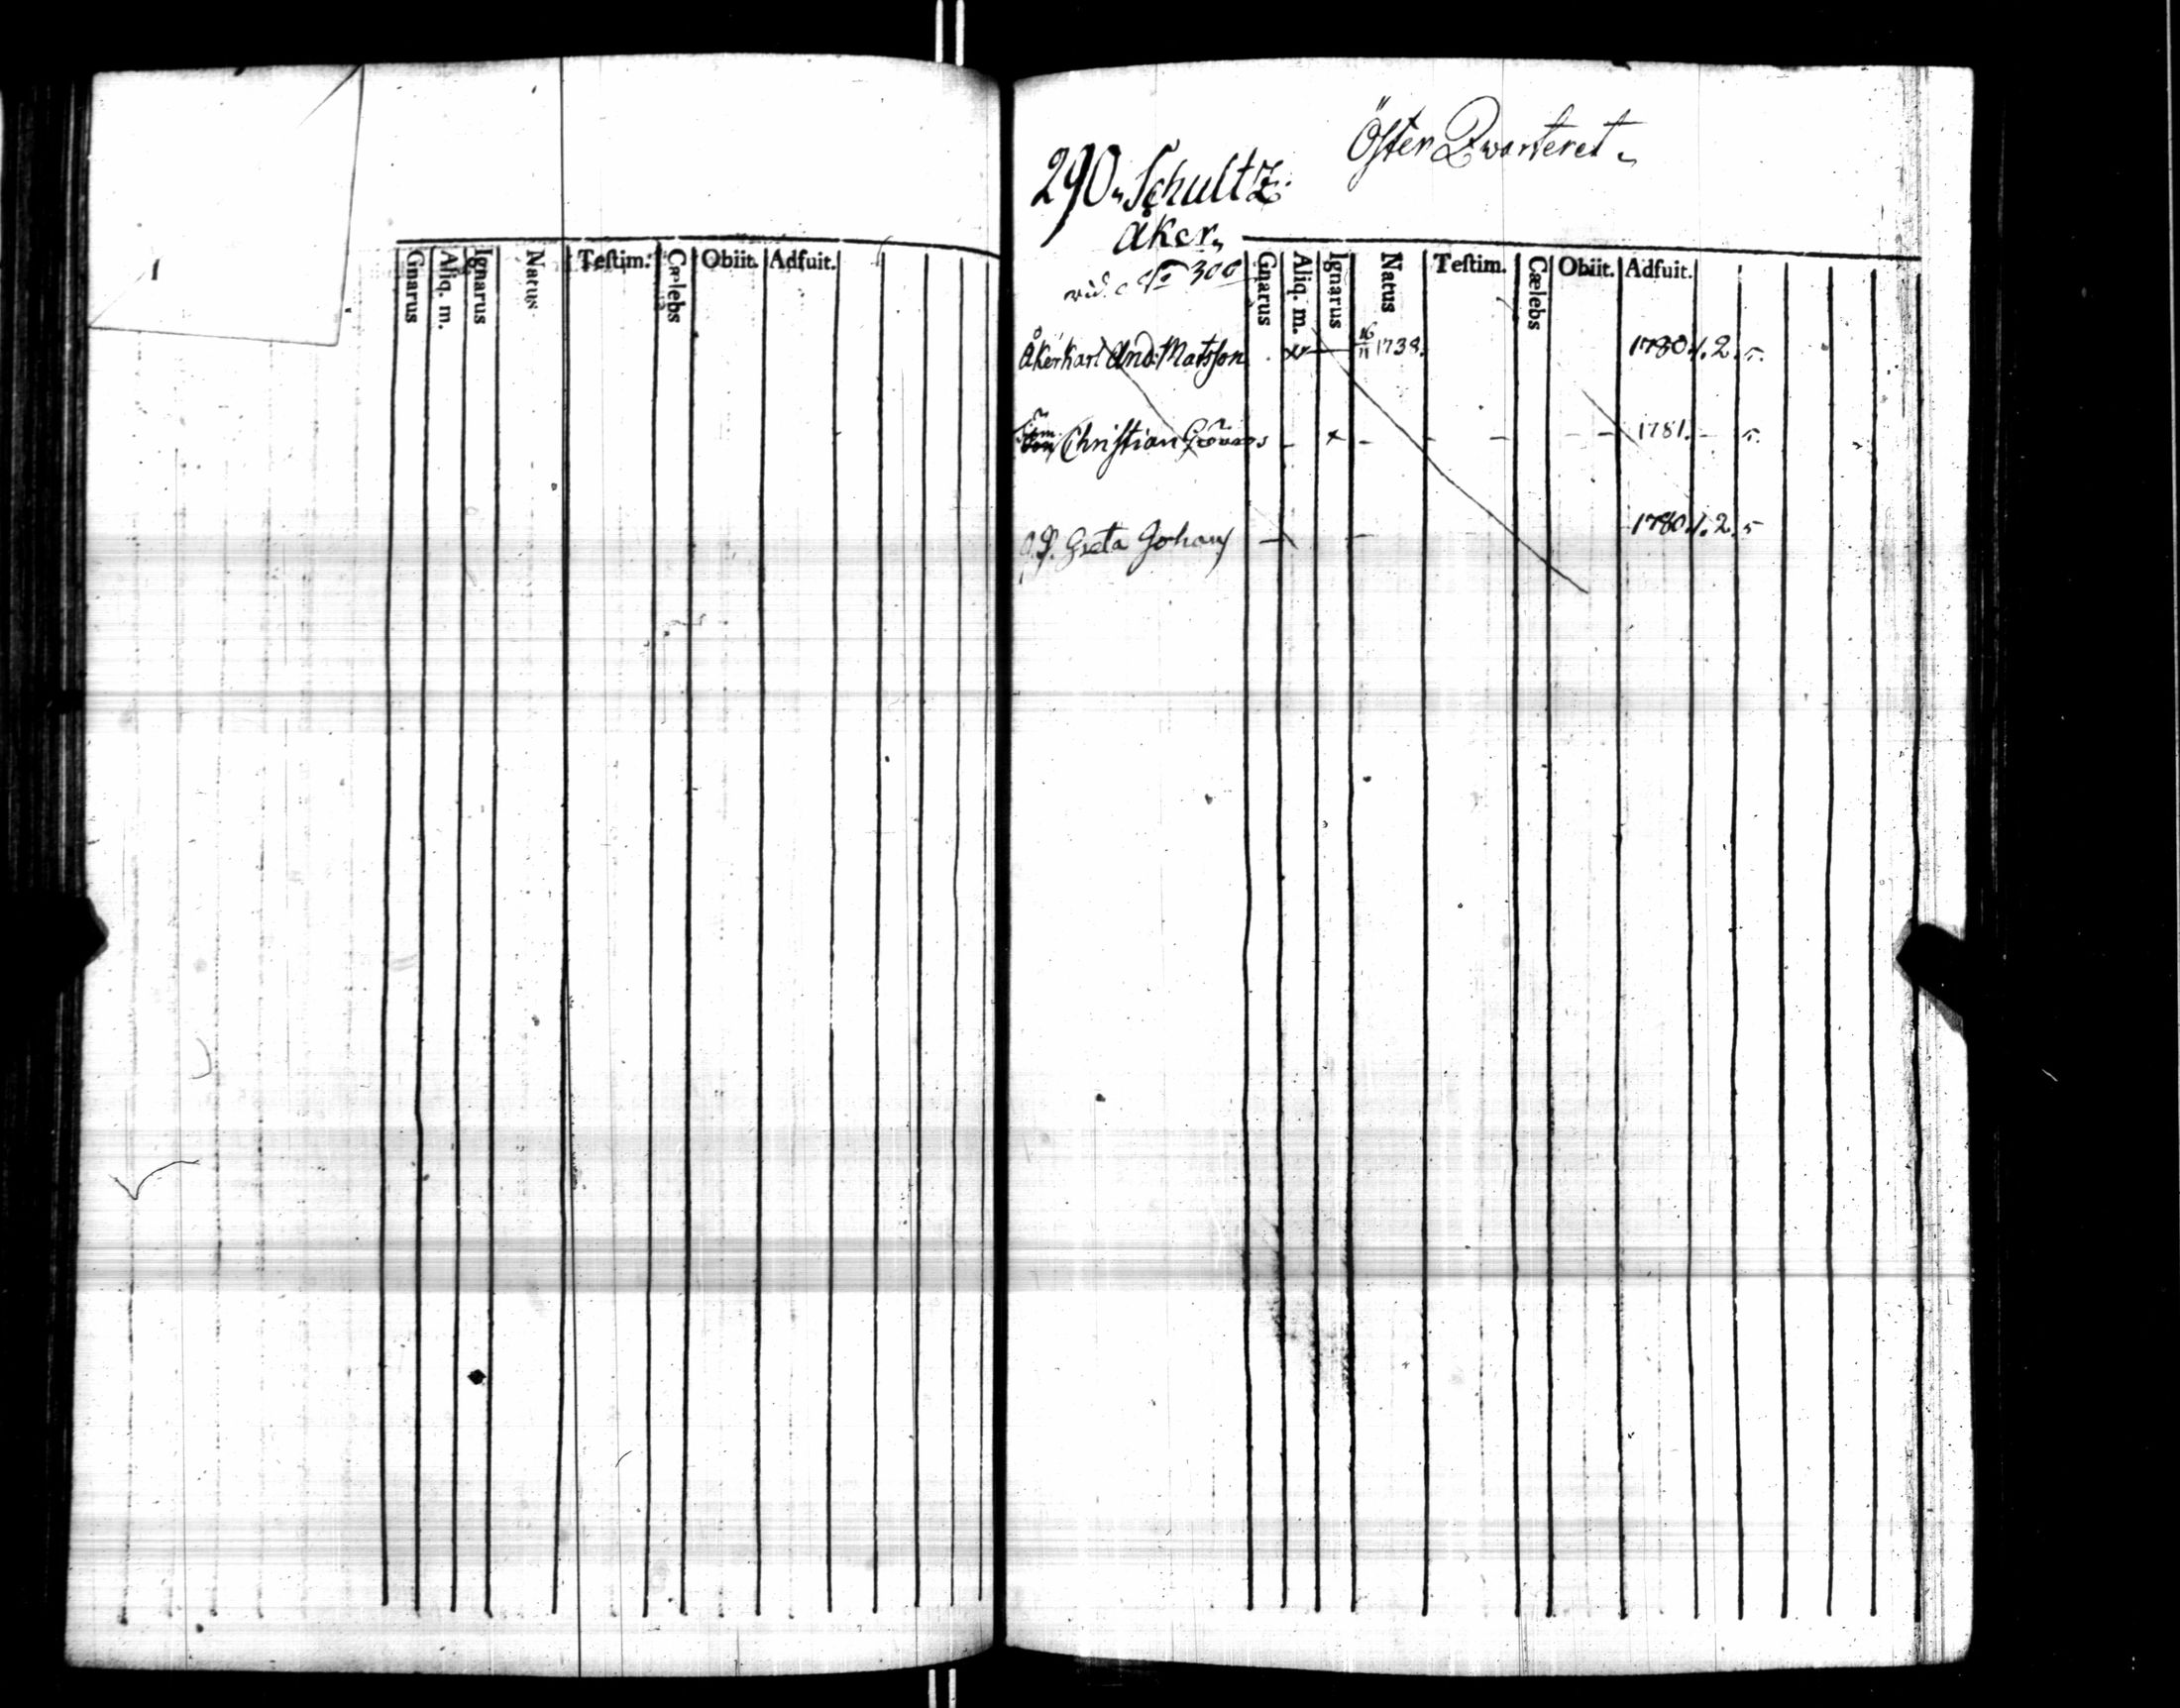 Gnarus Aliq. m. Ignarus Natus Testim. Cælebs Obiit. Adfuit.
Öster Qwarteret
290. Schultz
åker
vid. № 300
Gnarus Aliq. m. Ignarus Natus Testim. Cælebs Obiit. Adfuit.
Åkerkarl And: Matsson 16/11 1738. 1780. 1. 2. 5.
Christian 1781. - 5.
Greta Johans 1780. 1. 2. 5